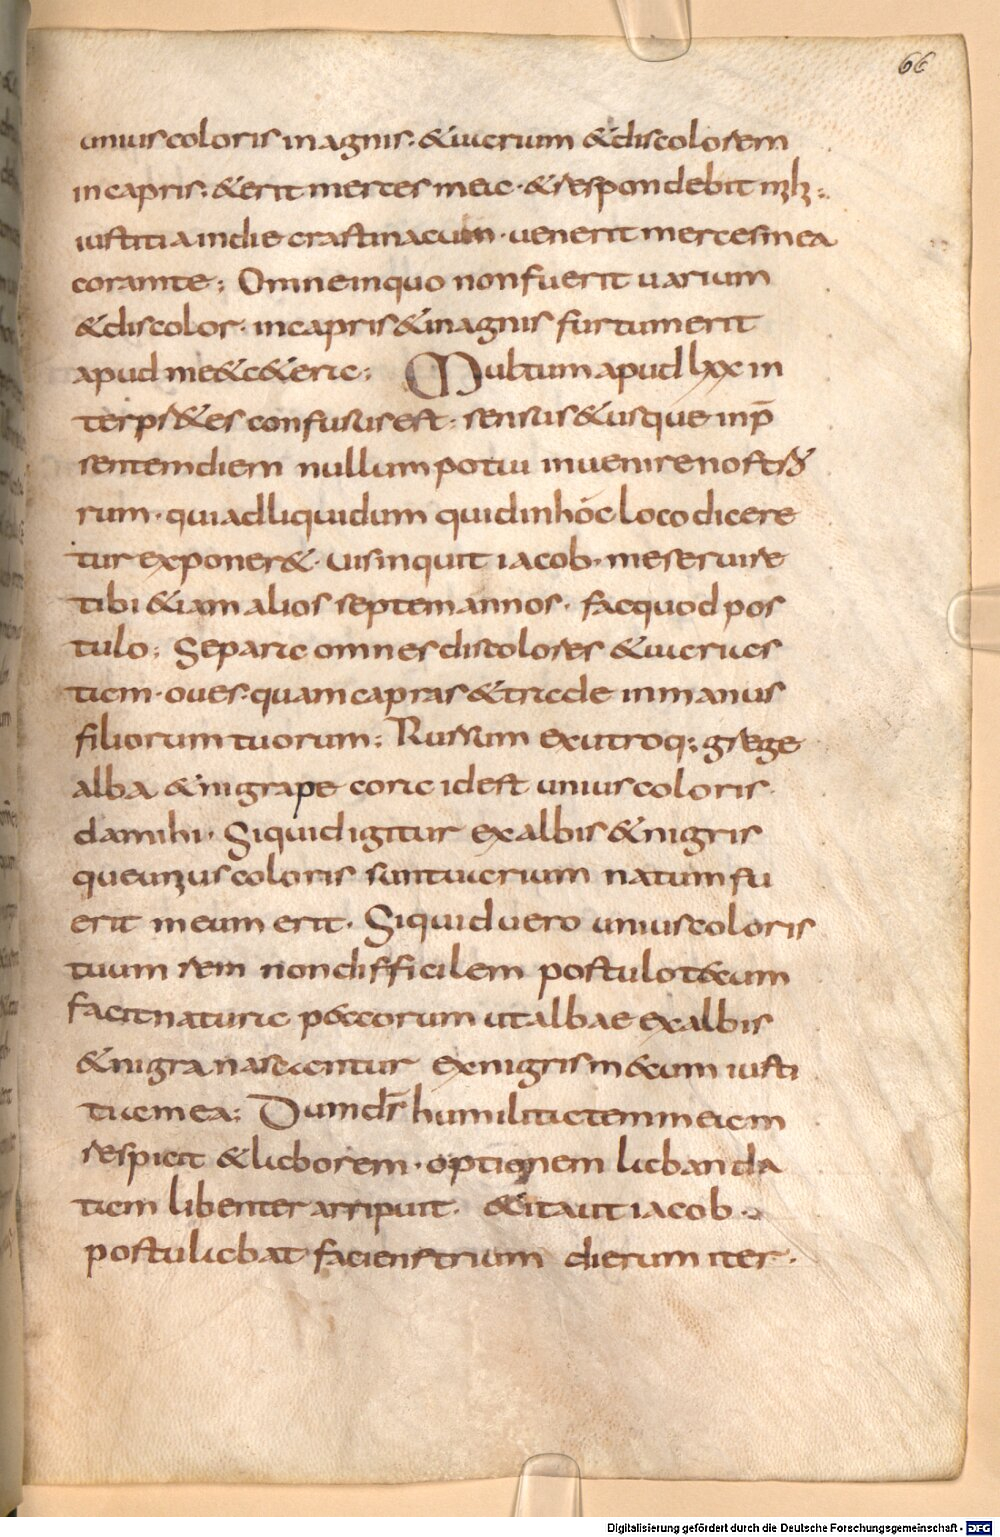 66
unius coloris in agnis· & uarium & discolorem
in capris; & erit merces mea· & respondebit m̅h̅;
iustitia in die crastina cum· uenerit merces mea
coram te; Omne in quo non fuerit uarium
& discolor· in capris & in agnis furtum erit
apud me & c&era; Multum apud lxx in
terpr&es confusus est· sensus & usque in p̄
sentem diem nullum potui inuenire nostro
rum· qui ad liquidum quid in hoc loco dicere
tur exponer&· uis inquit iacob· me seruire
tibi &iam alios septem annos· fac quod pos
tulo; Separa omnes discolores & uarias
tam· oues· quam capras & trade in manus
filiorum tuorum; Rursum ex utroq; grege
alba & nigra pecora id est unius coloris·
da mihi· Siquid igitur ex albis & nigris
quae unius coloris sunt uarium natum fu
erit meum erit· Siquid uero unius coloris
tuum rem non difficilem postulo tecum
facit natura pecorum ut albae ex albis
& nigra nascantur ex nigris mecum iusti
tia mea; Dum d̄s humilitatem meam
respicit & laborem· optionem laban da
tam libenter arripuit· & ita ut iacob·
postulabat faciens trium dierum iter·
Digitalisierung gefördert durch die Deutsche Forschungsgemeinschaft - DFG